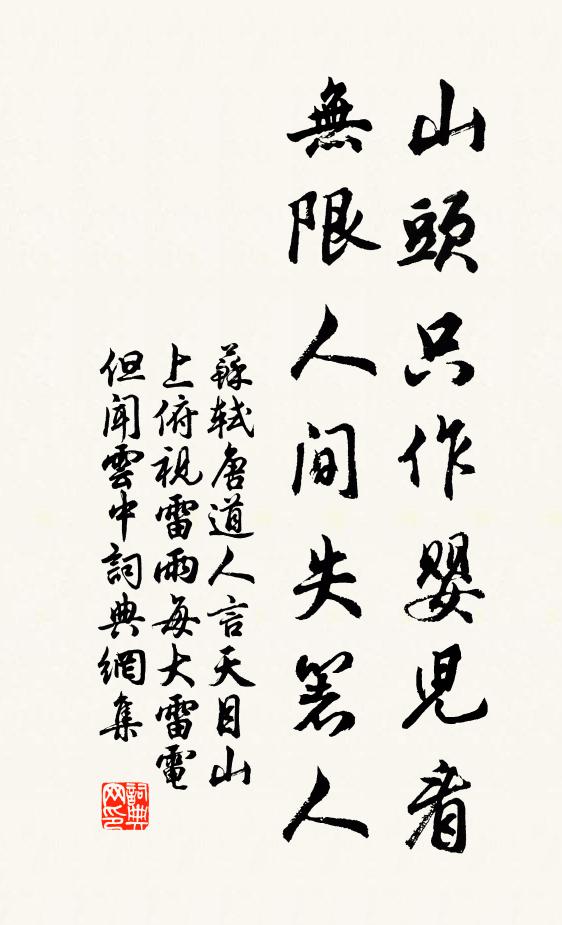 山頭只作嬰兒看
無限人間失箸人
蘇軾唐道人言天目山
上俯視雷雨每大雷電
但聞雲中詞典網集
詞典网印